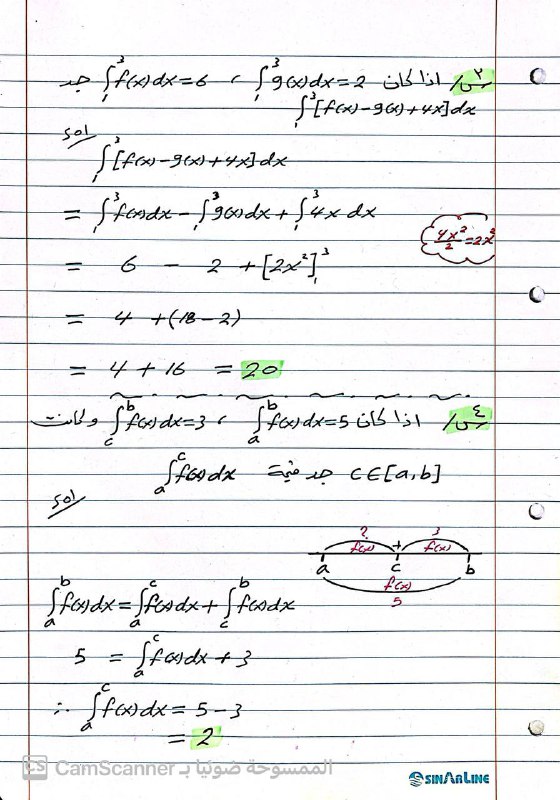 س٢/ اذا كان ∫₁³ g(x)dx=2 ، ∫₁³ f(x)dx=6 جد
∫₁³ [f(x)-g(x)+4x]dx
sol
∫₁³ [f(x)-g(x)+4x]dx
= ∫₁³ f(x)dx - ∫₁³ g(x)dx + ∫₁³ 4x dx
4x²/2 = 2x²
= 6 - 2 + [2x²]₁³
= 4 + (18-2)
= 4 + 16 = 20
س٤/ اذا كان ∫ₐᵇ f(x)dx=5 ، ∫_c^b f(x)dx=3 وكانت
c∈[a,b] جد قيمة ∫ₐᶜ f(x)dx
sol
? + 3
f(x) f(x)
a c b
f(x)
5
∫ₐᵇ f(x)dx = ∫ₐᶜ f(x)dx + ∫_c^b f(x)dx
5 = ∫ₐᶜ f(x)dx + 3
∴ ∫ₐᶜ f(x)dx = 5-3
= 2
CS CamScanner الممسوحة ضوئيا بـ
SINARLINE